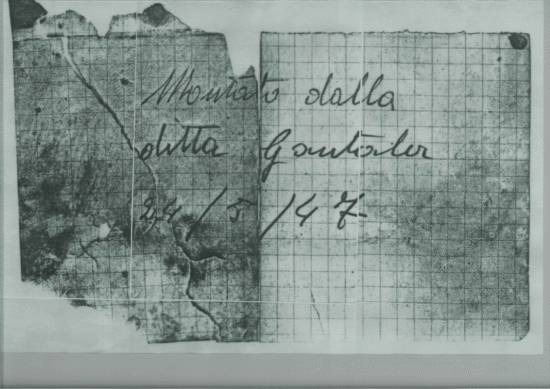 Montato dalla
ditta Gantaler
24/5/47